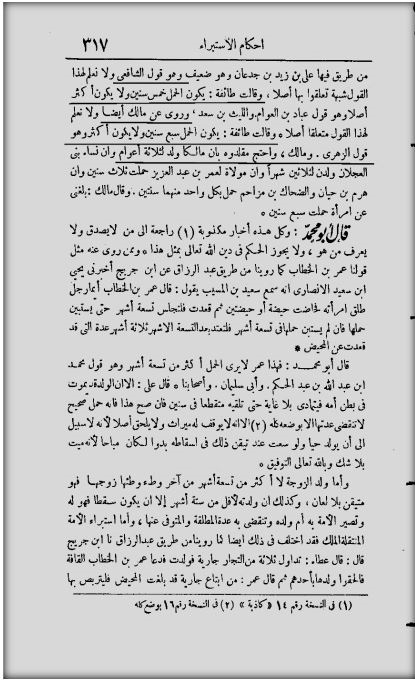 احكام الاستبراء ٣١٧
من طريق فيها على بن زيد بن جدعان وهو ضعيف وهو قول الشافعى ولا نعلم لهذا
القول شبهة تعلقوا بها أصلا، وقالت طائفة: يكون الحمل خمس سنين ولا يكون أكثر
أصلا وهو قول عباد بن العوام. والليث بن سعد، وروى عن مالك أيضا ولا نعلم
لهذا القول متعلقا أصلا * وقالت طائفة: يكون الحمل سبع سنين ولا يكون أكثر وهو
قول الزهرى. ومالك، واحتج مقلدوه بان مالكا ولد لثلاثة أعوام وان نساء بنى
العجلان ولدن لثلاثين شهرا وان مولاة لعمر بن عبد العزيز حملت ثلاث سنين وان
هرم بن حيان والضحاك بن مزاحم حمل بكل واحد منهما سنتين. وقال مالك: بلغنى
عن امرأة حملت سبع سنين *
قال أبو محمد: وكل هذه أخبار مكذوبة (١) راجعة الى من لا يصدق ولا
يعرف من هو، ولا يجوز الحكم فى دين الله تعالى بمثل هذا * وممن روى عنه مثل
قولنا عمر بن الخطاب كما روينا من طريق عبد الرزاق عن ابن جريج أخبرنى يحيى
ابن سعيد الانصارى انه سمع سعيد بن المسيب يقول: قال عمر بن الخطاب أيما رجل
طلق امرأته فحاضت حيضة أو حيضتين ثم قعدت فلتجلس تسعة أشهر حتى يستبين
حملها فان لم يستبن حملها فى تسعة أشهر فلتعتد بعد التسعة الاشهر ثلاثة أشهر عدة التى قد
قعدت عن المحيض *
قال أبو محمد: فهذا عمر لا يرى الحمل أكثر من تسعة أشهر وهو قول محمد
ابن عبد الله بن عبد الحكم. وأبى سليمان. وأصحابنا * قال على: الا ان الولد قد يموت
فى بطن أمه فيتمادى بلا غاية حتى تلقيه متقطعا فى سنين فان صح هذا فانه حمل صحيح
لا تنقضى عدتها الا بوضعه كله (٢) الا انه لا يوقف له ميراث ولا يلحق أصلا لانه لا سبيل
الى أن يولد حيا ولو سعت عند تيقن ذلك فى اسقاطه بدوا لكان مباحا لأنه ميت
بلا شك وبالله تعالى التوفيق *
وأما ولد الزوجة لا أكثر من تسعة أشهر من آخر وطء وطئها زوجها فهو
متيقن بلا لعان، وكذلك ان ولدته لاقل من ستة أشهر إلا ان يكون سقطا فهو له
وتصير الأمة به أم ولده وتنقضى به عدة المطلقة والمتوفى عنها، وأما استبراء الأمة
المنتقلة الملك فقد اختلف فى ذلك ايضا كما روينا من طريق عبد الرزاق نا ابن جريج
قال: قال عطاء: تداول ثلاثة من التجار جارية فولدت فدعا عمر بن الخطاب القافة
فالحقوا ولدها بأحدهم ثم قال عمر: من ابتاع جارية قد بلغت المحيض فليتربص بها
(١) فى النسخة رقم ١٤ «كاذبة» (٢) فى النسخة رقم ١٦ بوضع كله